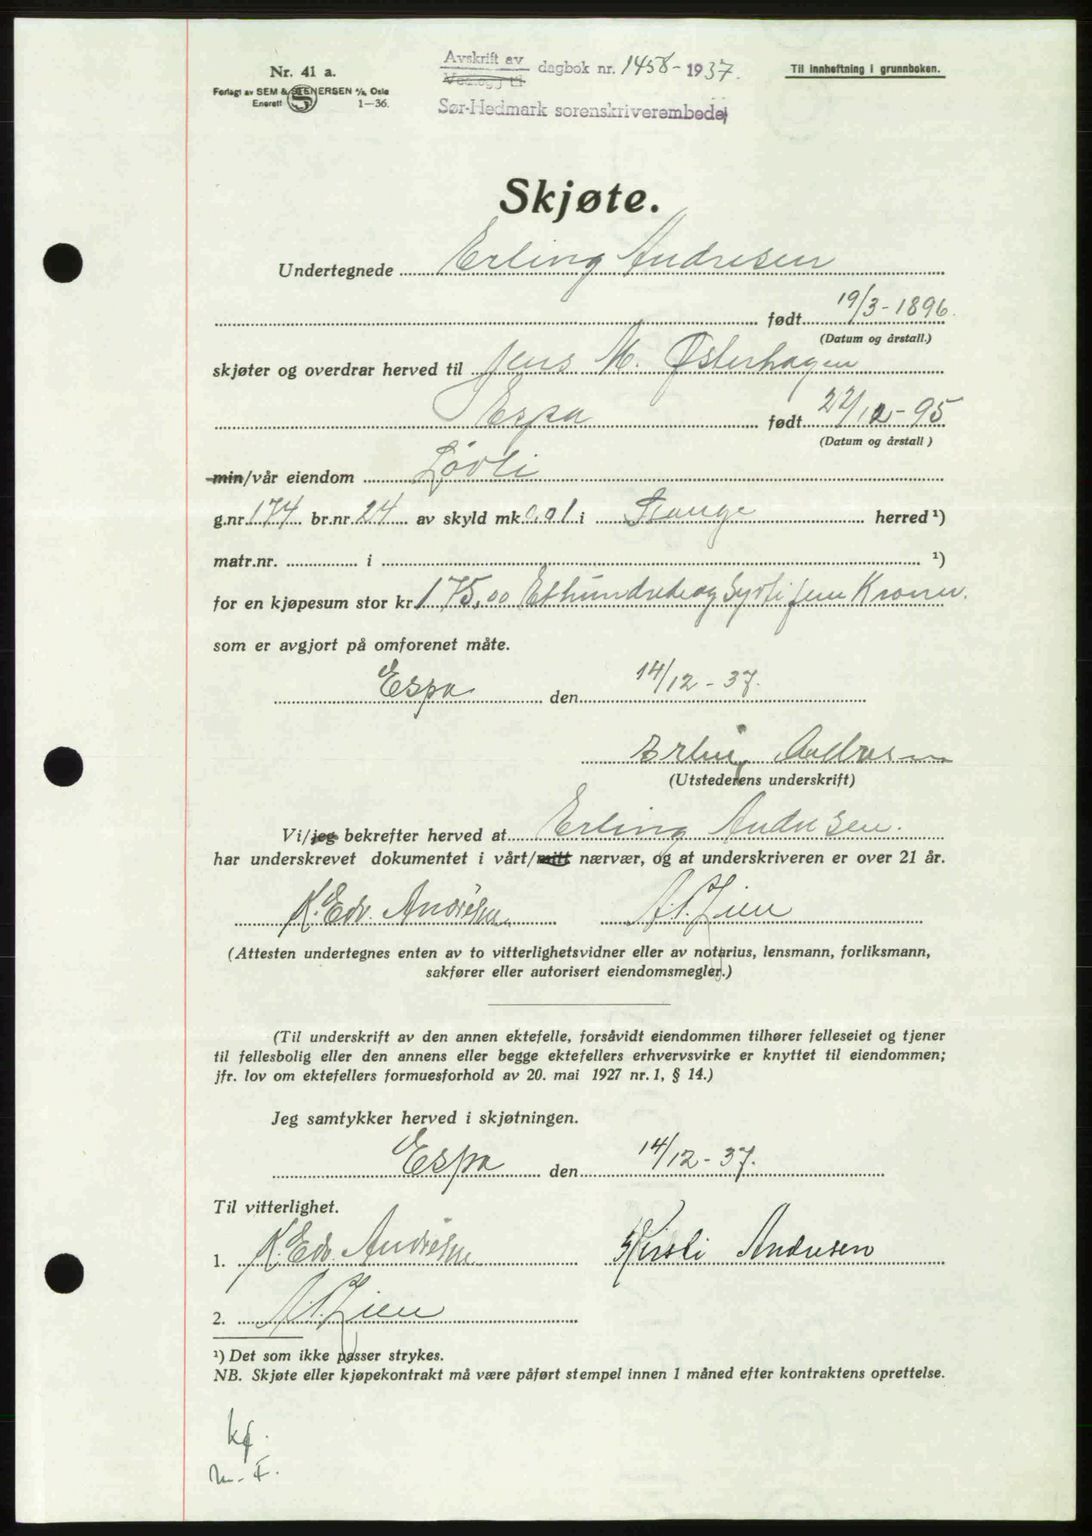 Nr. 41 a.
Forlagt av SEM & STENERSEN A/S, Oslo
Enerett 1—36.
Avskrift av
Vedlegg til
dagbok nr. 1458-1937.
Sør-Hedmark sorenskriverembede
Til innheftning i grunnboken.
Skjøte.
Undertegnede Erling Andresen
født 19/3-1896.
(Datum og årstall.)
skjøter og overdrar herved til Jens M. Østerhagen
Espa født 22/12-95
(Datum og årstall)
min/vår eiendom Løvli
g.nr. 174 br.nr. 24 av skyld mk. 0.01 i Stange herred ¹)
matr.nr. i ¹)
for en kjøpesum stor kr. 175,00 Ethundredeogsyttifem Kroner.
som er avgjort på omforenet måte.
Espa den 14/12-37.
Erling Andresen
(Utstederens underskrift)
Vi/jeg bekrefter herved at Erling Andresen.
har underskrevet dokumentet i vårt/mitt nærvær, og at underskriveren er over 21 år.
K. Edv. Andrésen A. Lien
(Attesten undertegnes enten av to vitterlighetsvidner eller av notarius, lensmann, forliksmann,
sakfører eller autorisert eiendomsmegler.)
(Til underskrift av den annen ektefelle, forsåvidt eiendommen tilhører felleseiet og tjener
til fellesbolig eller den annens eller begge ektefellers erhvervsvirke er knyttet til eiendommen;
jfr. lov om ektefellers formuesforhold av 20. mai 1927 nr. 1, § 14.)
Jeg samtykker herved i skjøtningen.
Espa den 14/12-37.
Til vitterlighet.
1. K. Edv. Andrésen Kirsti Andresen
2. A. Lien
¹) Det som ikke passer strykes.
NB. Skjøte eller kjøpekontrakt må være påført stempel innen 1 måned efter kontraktens oprettelse.